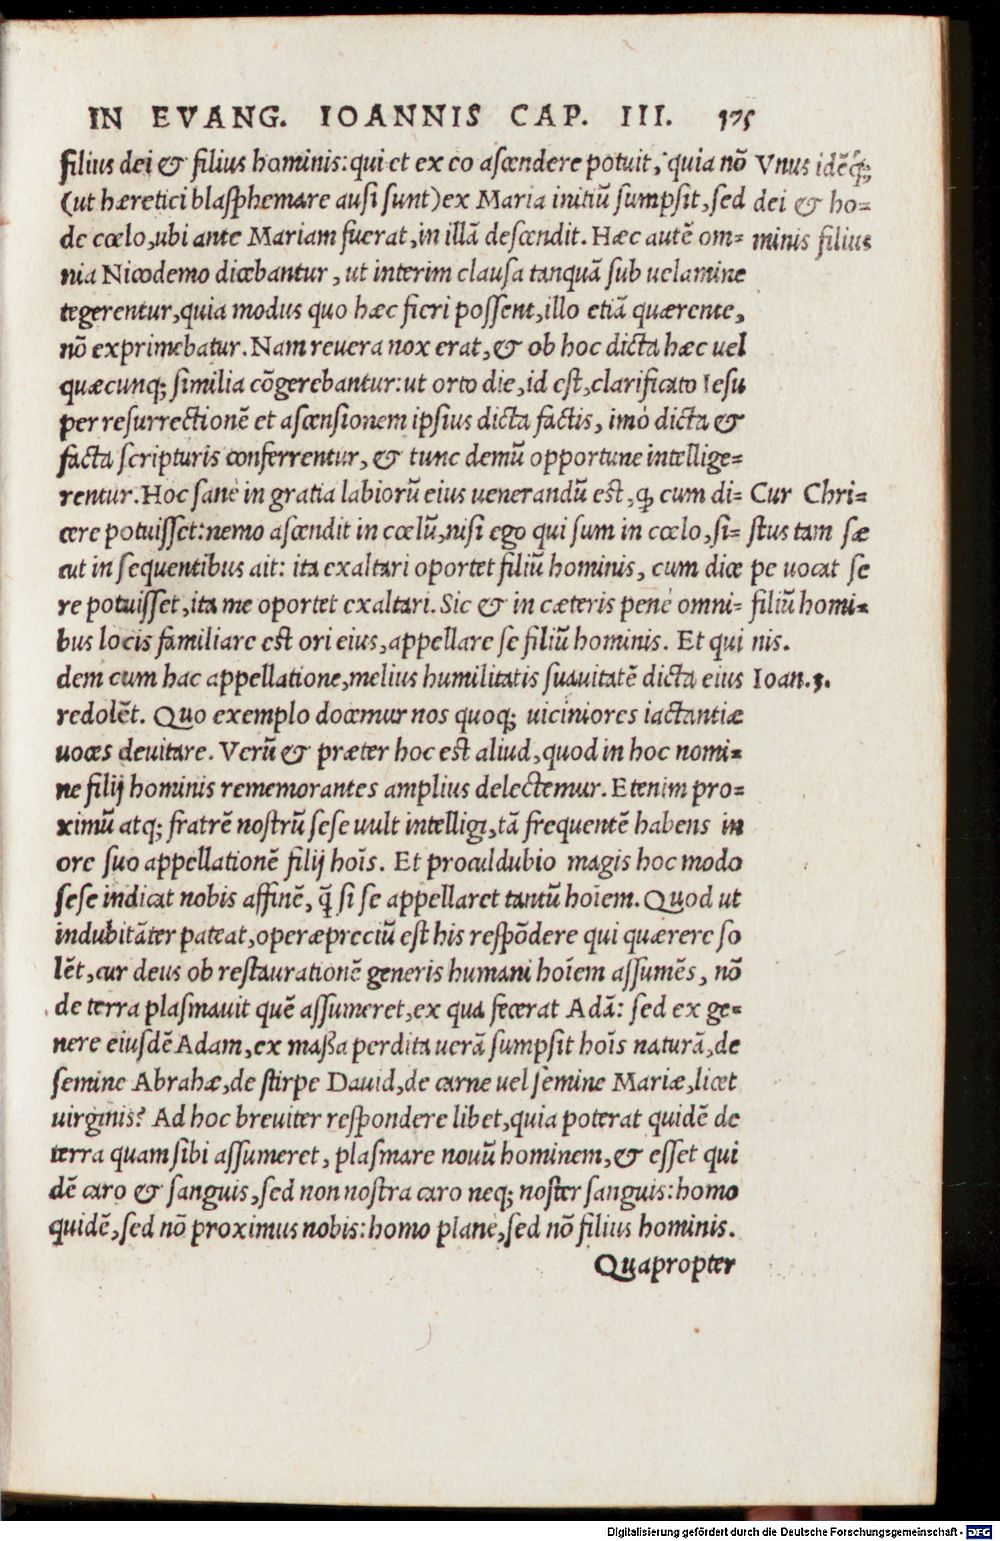 IN EVANG. IOANNIS CAP. III. 175
filius dei & filius hominis: qui et ex eo ascendere potuit, quia nō
(ut hæretici blasphemare ausi sunt) ex Maria initiū sumpsit, sed
de cœlo, ubi ante Mariam fuerat, in illā descendit. Hæc autē om=
nia Nicodemo dicebantur, ut interim clausa tanquā sub uelamine
tegerentur, quia modus quo hæc fieri possent, illo etiā quærente,
nō exprimebatur. Nam reuera nox erat, & ob hoc dicta hæc uel
quæcunq; similia cōgerebantur: ut orto die, id est, clarificato Iesu
per resurrectionē et ascensionem ipsius dicta factis, imò dicta &
facta scripturis conferrentur, & tunc demū opportune intellige=
rentur. Hoc sanè in gratia labiorū eius uenerandū est, ꝙ cum di=
cere potuisset: nemo ascendit in cœlū, nisi ego qui sum in cœlo, si=
cut in sequentibus ait: ita exaltari oportet filiū hominis, cum dice
re potuisset, ita me oportet exaltari. Sic & in cæteris penè omni=
bus locis familiare est ori eius, appellare se filiū hominis. Et qui
dem cum hac appellatione, melius humilitatis suauitatē dicta eius
redolēt. Quo exemplo docemur nos quoq; uiciniores iactantiæ
uoces deuitare. Verū & præter hoc est aliud, quod in hoc nomi=
ne filij hominis rememorantes amplius delectemur. Etenim pro=
ximū atq; fratrē nostrū sese uult intelligi, tā frequentē habens in
ore suo appellationē filij hoīs. Et proculdubio magis hoc modo
sese indicat nobis affinē, q̄ si se appellaret tantū hoīem. Quod ut
indubitāter pateat, operæpreciū est his respōdere qui quærere so
lēt, cur deus ob restaurationē generis humani hoīem assumēs, nō
de terra plasmauit quē assumeret, ex qua fecerat Adā: sed ex ge=
nere eiusdē Adam, ex massa perdita uerā sumpsit hoīs naturā, de
semine Abrahæ, de stirpe Dauid, de carne uel semine Mariæ, licet
uirginis? Ad hoc breuiter respondere libet, quia poterat quidē de
terra quam sibi assumeret, plasmare nouū hominem, & esset qui
dē caro & sanguis, sed non nostra caro neq; noster sanguis: homo
quidē, sed nō proximus nobis: homo planè, sed nō filius hominis.
Quapropter
Vnus idēq;
dei & ho=
minis filius
Cur Chri=
stus tam sæ
pe uocat se
filiū homi=
nis.
Ioan. 3.
Digitalisierung gefördert durch die Deutsche Forschungsgemeinschaft - DFG